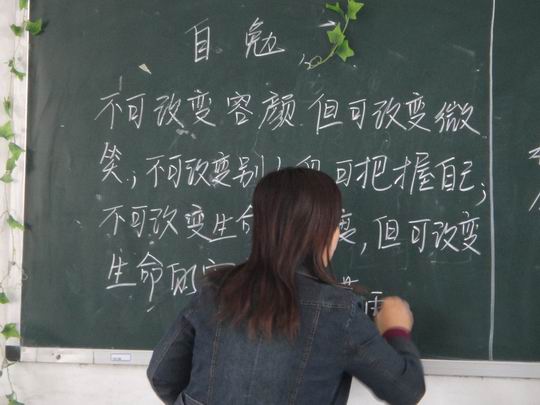 自勉
不可改变容颜 但可改变微
笑；不可改变别 可把握自己；
不可改变生命 度，但可改变
生命的